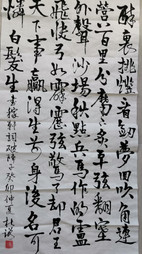 醉裏挑燈看劍夢回吹角連
營八百里分麾下炙五十弦翻塞
外聲沙場秋點兵馬作的盧
飛快弓如霹靂弦驚了卻君王
天下事贏得生前身後名可
憐白髮生 詞破陣子癸卯仲夏